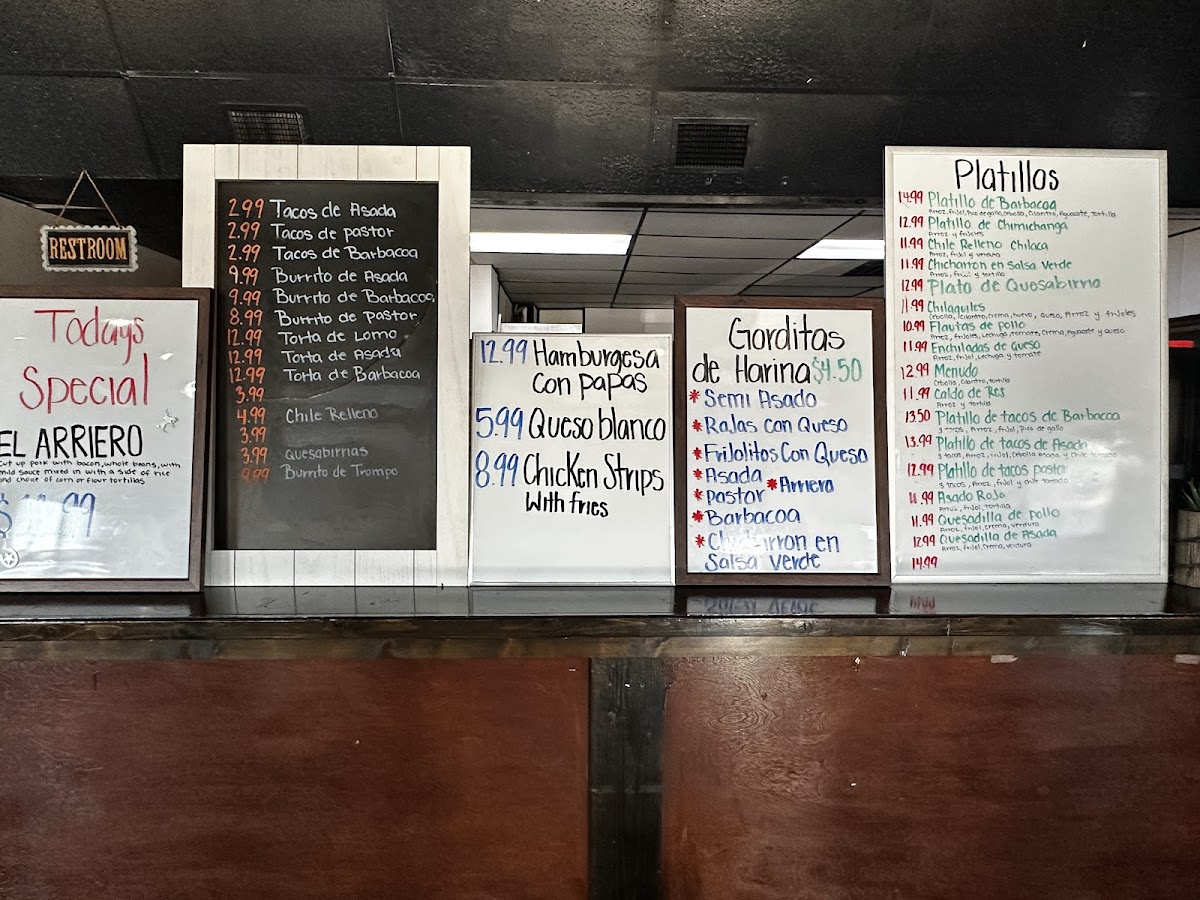 RESTROOM
Todays
Special
EL ARRIERO
Cut up pork with bacon, whole beans, with
mild sauce mixed in with a side of rice
and choice of corn or flour tortillas
$ 99
2.99 Tacos de Asada
2.99 Tacos de pastor
2.99 Tacos de Barbacoa
9.99 Burrito de Asada
9.99 Burrito de Barbacoa
8.99 Burrito de Pastor
12.99 Torta de Lomo
12.99 Torta de Asada
12.99 Torta de Barbacoa
3.99
4.99 Chile Relleno
3.99
3.99 Quesabirrias
9.99 Burrito de Trompo
12.99 Hamburgesa
con papas
5.99 Queso blanco
8.99 Chicken Strips
With fries
Gorditas
de Harina $4.50
* Semi Asado
* Rajas con Queso
* Frijolitos Con Queso
* Asada * Arriera
* Pastor
* Barbacoa
* Chicharron en
Salsa Verde
Platillos
14.99 Platillo de Barbacoa
Arroz, frijol, Pico de gallo, cebolla, cilantro, Aguacate, tortilla
12.99 Platillo de Chimichanga
Arroz y frijoles
11.99 Chile Relleno Chilaca
Arroz, frijol y verdura
11.99 Chicharron en Salsa Verde
Arroz, frijol y tortilla
12.99 Plato de Quesabirria
11.99 Chilaquiles
Cebolla, cilantro, crema, huevo, queso, Arroz y frijoles
10.99 Flautas de pollo
Arroz, frijoles, lechuga, tomate, crema, Aguacate y queso
11.99 Enchiladas de Queso
Arroz, frijol, lechuga y tomate
12.99 Menudo
Cebolla, cilantro, tortilla
11.99 Caldo de Res
Arroz y tortilla
13.50 Platillo de tacos de Barbacoa
3 tacos, Arroz, frijol, Pico de gallo
13.99 Platillo de tacos de Asada
3 tacos, Arroz, frijol, cebolla Asada y chile toreado
12.99 Platillo de tacos pastor
3 tacos, Arroz, frijol y chile toreado
11.99 Asado Rojo
Arroz, frijol, tortilla
11.99 Quesadilla de pollo
Arroz, frijol, crema, verdura
12.99 Quesadilla de Asada
Arroz, frijol, crema, verdura
14.99